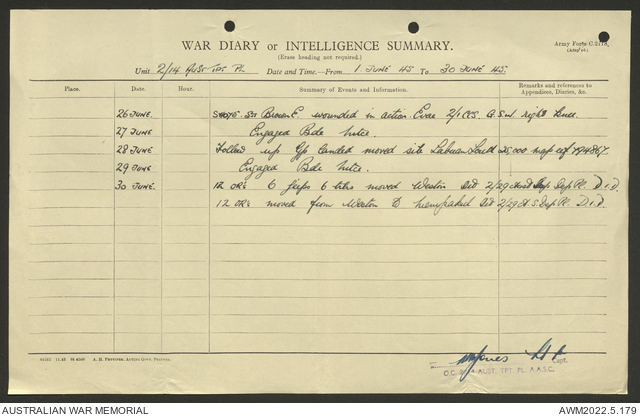 WAR DIARY or INTELLIGENCE SUMMARY.
(Erase heading not required.)
Army Form C.2118.
Unit 2/14 Aust Tpt Pl. Date and Time.—From 1 JUNE 45 To 30 JUNE 45.
Place. Date. Hour. Summary of Events and Information. Remarks and references to Appendices, Diaries, &c.
26 JUNE. Brown E. wounded in action. Evac 2/1 CCS. G.S.W. right knee.
27 JUNE Engaged Bde
28 JUNE Follow up Gp landed moved site Labuan 25,000 map ref 794867
29 JUNE Engaged Bde
30 JUNE. 12 OR's 6 jeeps 6 tlrs moved Weston 2/29 Sup Dep Pl. D.I.D.
12 OR's moved from Weston to 2/29 Sup Dep Pl. D.I.D.
A. H. PETTIFER, ACTING GOVT. PRINTER.
Jones Capt.
O.C. 2/14 AUST. TPT. PL. A.A.S.C.
AUSTRALIAN WAR MEMORIAL
AWM2022.5.179